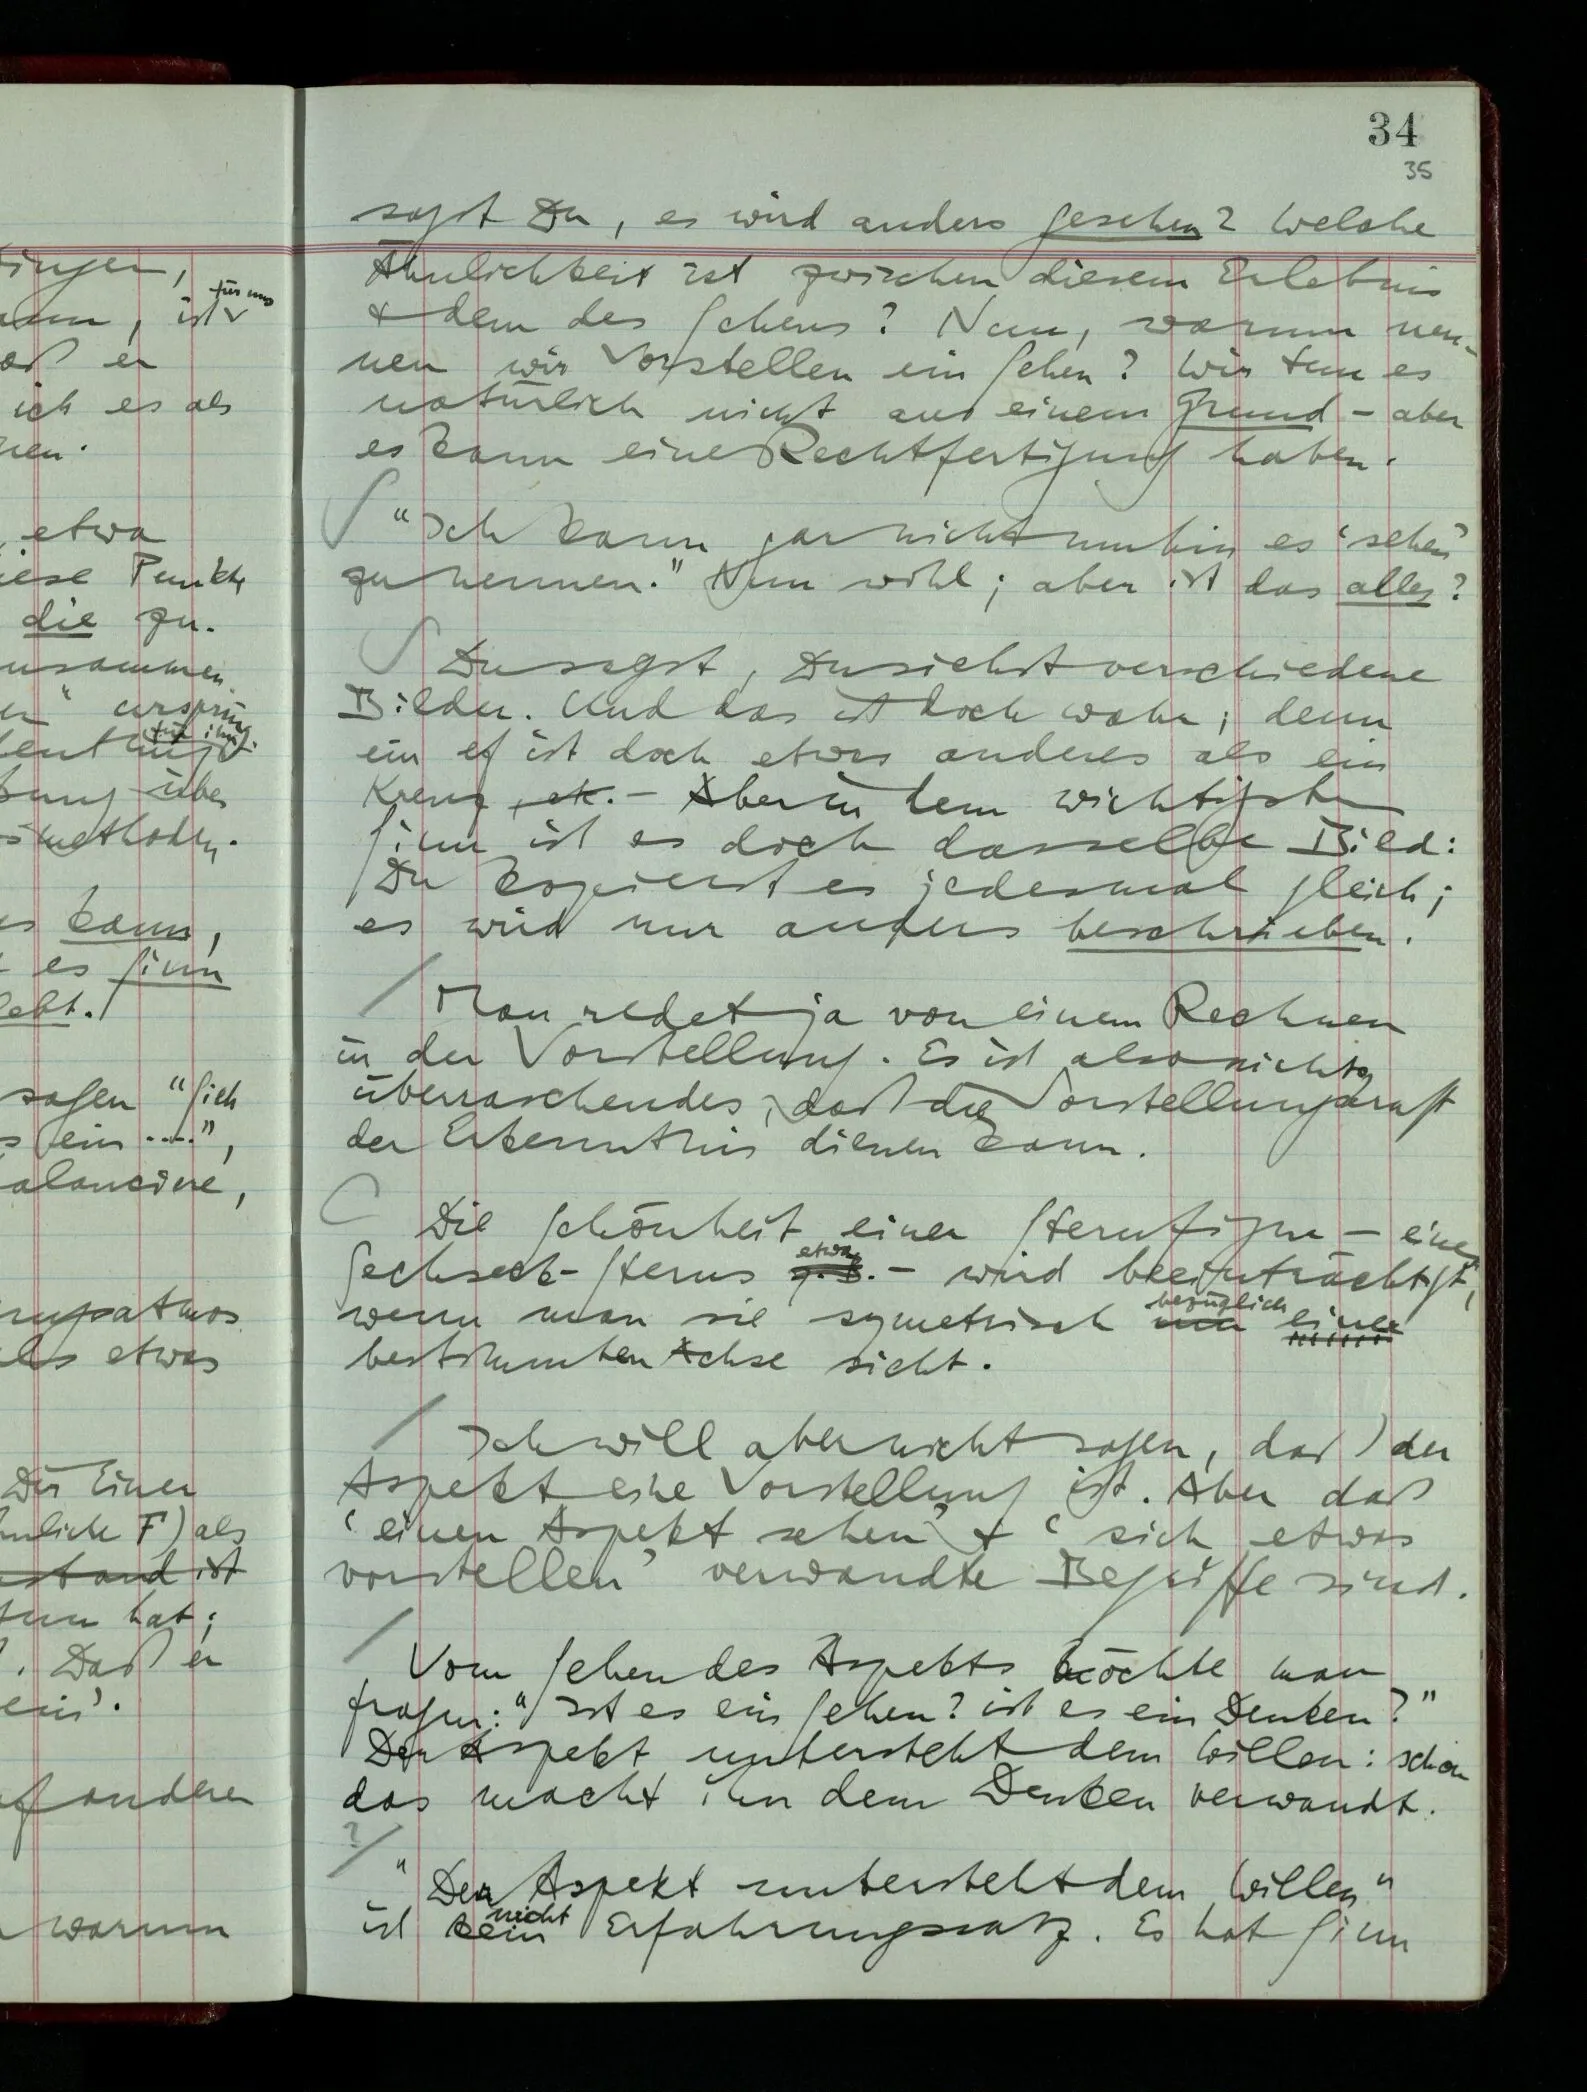 34
35
sagst Du, es wird anders gesehen? Welche
Ähnlichkeit ist zwischen diesem Erlebnis
& dem des Sehens? Nun, warum nen-
nen wir Vorstellen ein Sehen? Wir tun es
natürlich nicht aus einem Grund – aber
es kann eine Rechtfertigung haben.
"Ich kann gar nicht umhin es 'sehen'
zu nennen." Nun wohl; aber ist das alles?
Du sagst, Du siehst verschiedene
Bilder. Und das ist doch wahr; denn
ein ef ist doch etwas anderes als ein
Kreuz, etc. – Aber in dem wichtigsten
Sinn ist es doch dasselbe Bild:
Du kopierst es jedesmal gleich;
es wird nur anders beschrieben.
Man redet ja von einem Rechnen
in der Vorstellung. Es ist also nichts
überraschendes, daß die Vorstellungskraft
der Erkenntnis dienen kann.
Die Schönheit einer Sternfigur – eines
etwa
Sechseck-Sterns z.B. – wird beeinträchtigt,
bezüglich
wenn man sie symetrisch um einer
bestimmten Achse sieht.
Ich will aber nicht sagen, daß der
Aspekt eine Vorstellung ist. Aber daß
'einen Aspekt sehen' & 'sich etwas
vorstellen' verwandte Begriffe sind.
Vom Sehen des Aspekts möchte man
fragen: "Ist es ein Sehen? ist es ein Denken?"
Der Aspekt untersteht dem Willen: schon
das macht ihn dem Denken verwandt.
?/
"Der Aspekt untersteht dem Willen"
nicht
ist kein Erfahrungssatz. Es hat Sinn
tingen,
für uns
ist
er
ich es als
nen.
etwa
iese Punkte
die zu-
zusammen
ursprüng
für ihn
über
smethode.
es kann,
es Sinn
lebt.
sagen "Sich
s ein ....",
alancine,
als etwas
Die Einer
hnliche F) als
ist
tun hat;
. Daß er
ein'.
auf andere
warum